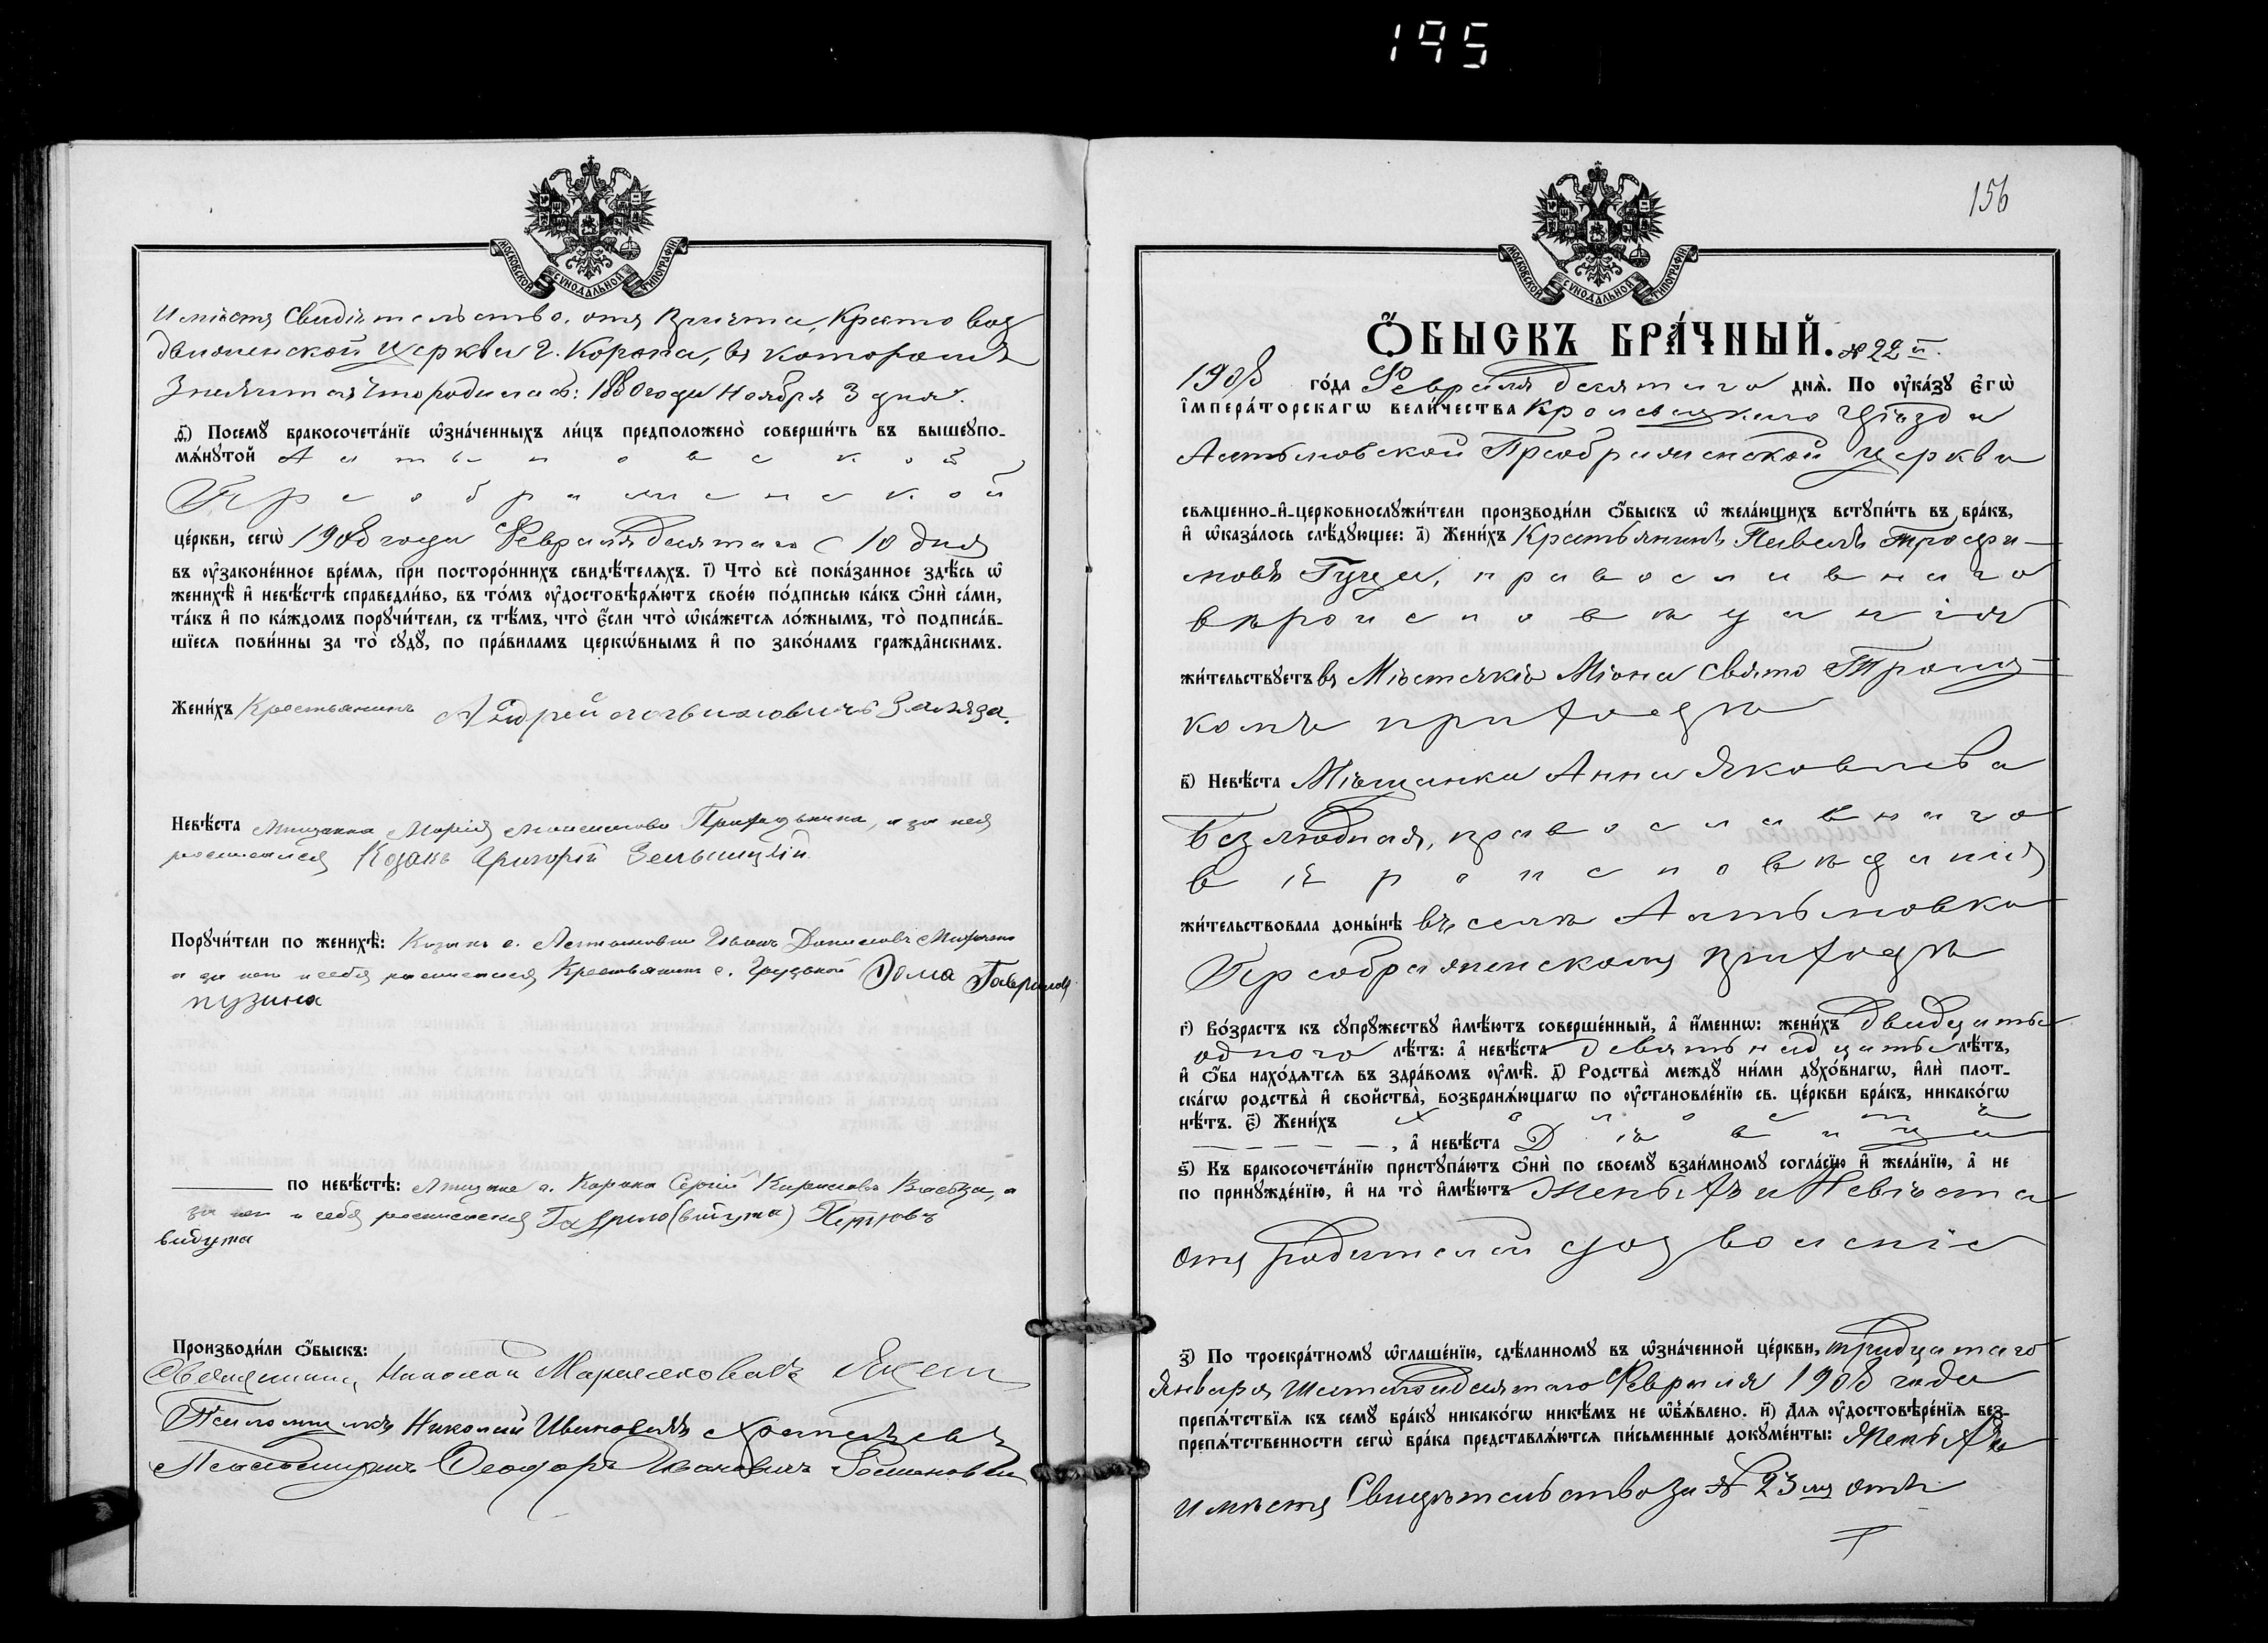 195
МОСКОВСКОЙ СѴНОДАЛЬНОЙ ТИПОГРАФІИ
имѣетъ Свидѣтельство отъ Причта, Кресто воз
движенской Церкви г. Коропа, въ которомъ
Значится что родилась: 1880 года Ноября 3 дня.
Посемꙋ̀ бракосочета́нїе ѡ҆зна́ченныхъ ли́цъ предположено̀ соверши́ть въ вышеꙋпо-
мѧ́нꙋтой Алтыновской
Преображенской
це́ркви, сегѡ̀ 1908 года Февраля десятаго (10 дня
въ ᲂу҆зако́ненное вре́мѧ, при посторо́ннихъ свидѣ́телѧхъ. і҃) Что̀ всѐ пока́занное здѣ́сь ѡ҆
женихѣ̀ и҆ невѣ́стѣ справедли́во, въ то́мъ ᲂу҆достовѣрѧ́ютъ свое́ю по́дписью ка́къ ѻ҆нѝ са́ми,
та́къ и҆ по ка́ждомъ порꙋчи́тели, съ тѣ́мъ, что̀ є҆́сли что̀ ѡ҆ка́жетсѧ ло́жнымъ, то̀ подписа́в-
шїесѧ пови́нны за то̀ сꙋдꙋ̀, по пра́виламъ церко́внымъ и҆ по зако́намъ гражда́нскимъ.
Жени́хъ Крестьянинъ Андрей
Невѣ́ста Мещанка Марія, а за нея
росписался Козакъ Григорій
Порꙋчи́тели по женихѣ̀: Козакъ с. Алтыновки Иванъ Даниловъ
и за него и себя росписался Крестьянинъ с. Грузской Гаврилов
пузина
по невѣ́стѣ: г. Коропа Сергій Кириловъ, а
за него и себя росписался Гаврило Петровъ
видута
Производи́ли ѻ҆́быскъ:
Священникъ Николай
Псаломщикъ Николай Ивановичъ
Псаломщикъ Ѳеодоръ Ивановичъ
156
МОСКОВСКОЙ СѴНОДАЛЬНОЙ ТИПОГРАФІИ
Ѻ҆́БЫСКЪ БРА́ЧНЫЙ. № 22й.
1908 го́да Февраля десятаго днѧ̀. По ᲂу҆ка́зꙋ є҆гѡ̀
і҆мпера́торскагѡ вели́чества Кролевецкаго Уѣзда
Алтыновской Преображенской церкви
свѧщенно-и҆-церковнослꙋжи́тели производи́ли ѻ҆́быскъ ѡ҆ жела́ющихъ встꙋпи́ть въ бра́къ,
и҆ ѡ҆каза́лось слѣ́дꙋющее: а҃) Жени́хъ Крестьянинъ Павелъ Трофи-
мовъ Гуща, православнаго
вѣроисповѣданія
жи́тельствꙋетъ въ Мѣстечкѣ Мѣна Свято Троиц-
комъ приходѣ
в҃) Невѣ́ста Мѣщанка Анна Яковлева
Безлюдная, православнаго
вѣроисповѣданія
жи́тельствовала доны́нѣ въ селѣ Алтыновка
Преображенскомъ приходѣ
г҃) Во́зрастъ къ сꙋпрꙋ́жествꙋ и҆мѣ́ютъ соверше́нный, а҆ и҆́меннѡ: жени́хъ двадцать
одного лѣ́тъ: а҆ невѣ́ста девятнадцать лѣ́тъ,
и҆ ѻ҆́ба нахо́дѧтсѧ въ здра́вомъ ᲂу҆мѣ̀. д҃) Родства̀ междꙋ̀ ни́ми дꙋхо́внагѡ, и҆лѝ плот-
ска́гѡ родства̀ и҆ сво́йства, возбранѧ́ющагѡ по ᲂу҆становле́нїю св. це́ркви бра́къ, никако́гѡ
нѣ́тъ. є҃) Жени́хъ холостъ
, а҆ невѣ́ста Дѣвица
ѕ҃) Къ бракосочета́нїю пристꙋпа́ютъ ѻ҆нѝ по своемꙋ̀ взаи́мномꙋ согла́сїю и҆ жела́нїю, а҆ не
по принꙋжде́нїю, и҆ на то̀ и҆мѣ́ютъ Женихъ и Невѣста
отъ родителей дозволеніе
з҃) По троекра́тномꙋ ѡ҆глаше́нїю, сдѣ́ланномꙋ въ ѡ҆зна́ченной це́ркви, тридцатаго
Января Шестаго и десятаго Февраля 1908 года
препѧ́тствїѧ къ семꙋ̀ бра́кꙋ никако́гѡ никѣ́мъ не ѡ҆бъѧ́влено. и҃) Длѧ ᲂу҆достовѣре́нїѧ без-
препѧ́тственности сегѡ̀ бра́ка представлѧ́ютсѧ пи́сьменные докꙋме́нты: Женихъ
имѣетъ Свидѣтельство за № 23 отъ